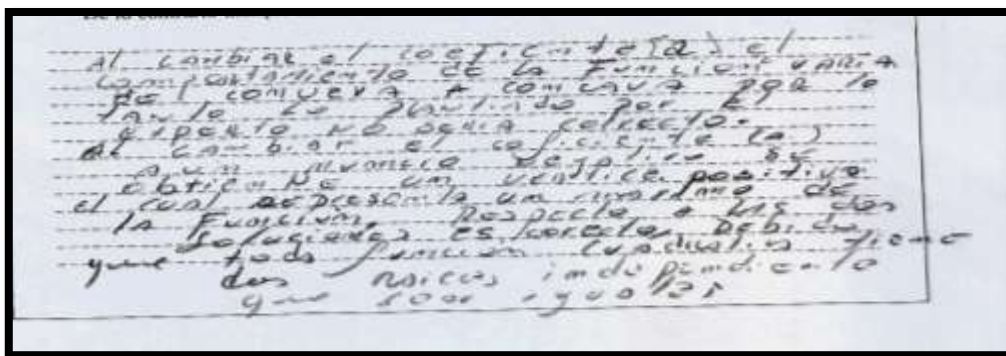 Al cambiar el coeficiente (a) el
comportamiento de la función varia
de convexa a concava por lo
tanto lo plantiado por el
experto no seria correcto.
Al cambiar el coeficiente (a)
a un numero negativo se
obtiene un vertice positivo
el cual representa un maximo de
la función. Respecto a las dos
soluciones es correcto Debido
que toda función cuadratica tiene
dos raices independiente
que sean iguales